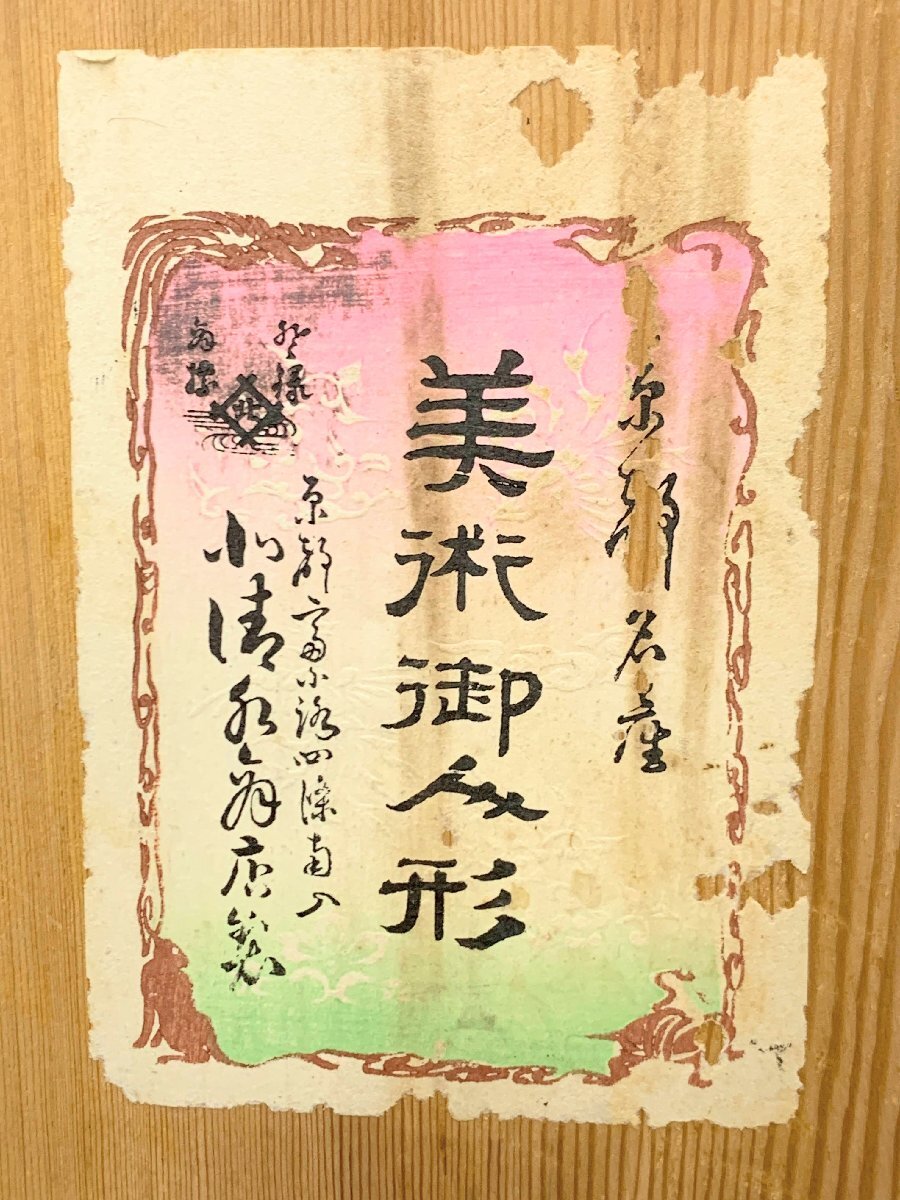 京都名産
美術御人形
登録
商標
北
京都富小路四條南入
小清水人形店製